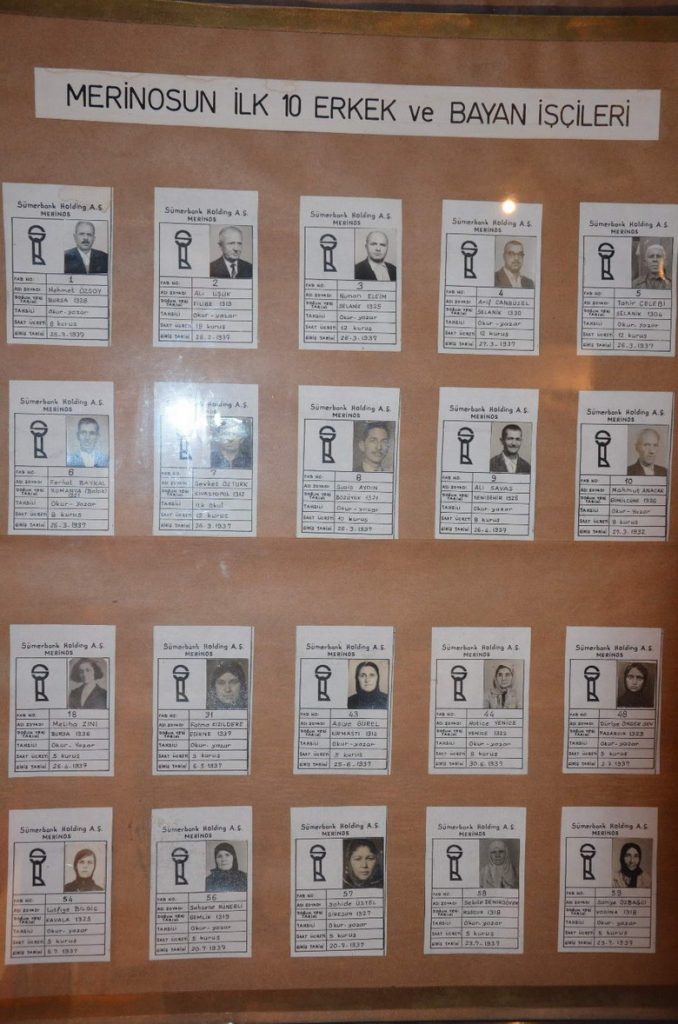 MERİNOSUN İLK 10 ERKEK ve BAYAN İŞÇİLERİ
Sümerbank Holding A.Ş.
MERİNOS
FAB NO: 1
ADI SOYADI Mehmet ÖZSOY
DOĞUM YERİ TARİHİ BURSA 1328
TAHSİLİ Okur-yazar
SAAT ÜCRETİ 8 kuruş
GİRİŞ TARİHİ 26-3-1937
Sümerbank Holding A.Ş.
MERİNOS
FAB NO: 2
ADI SOYADI Ali UŞÜK
DOĞUM YERİ TARİHİ FİLİBE 1313
TAHSİLİ Okur-yazar
SAAT ÜCRETİ 18 kuruş
GİRİŞ TARİHİ 26-3-1937
Sümerbank Holding A.Ş.
MERİNOS
FAB NO: 3
ADI SOYADI Numan
DOĞUM YERİ TARİHİ SELANİK 1325
TAHSİLİ Okur-yazar
SAAT ÜCRETİ 12 kuruş
GİRİŞ TARİHİ 26-3-1937
Sümerbank Holding A.Ş.
MERİNOS
FAB NO: 4
ADI SOYADI Arif
DOĞUM YERİ TARİHİ SELANİK 1330
TAHSİLİ Okur-yazar
SAAT ÜCRETİ 12 kuruş
GİRİŞ TARİHİ 27-3-1937
Sümerbank Holding A.Ş.
MERİNOS
FAB NO: 5
ADI SOYADI Tahir ÇELEBİ
DOĞUM YERİ TARİHİ SELANİK 1304
TAHSİLİ Okur-yazar
SAAT ÜCRETİ 12 kuruş
GİRİŞ TARİHİ 26-3-1937
Sümerbank Holding A.Ş.
MERİNOS
FAB NO: 6
ADI SOYADI Ferhat BAYKAL
DOĞUM YERİ TARİHİ ROMANYA
TAHSİLİ Okur-yazar
SAAT ÜCRETİ 8 kuruş
GİRİŞ TARİHİ 26-3-1937
Holding A.Ş.
FAB NO: 7
ADI SOYADI Şevket ÖZTÜRK
DOĞUM YERİ TARİHİ SİVASTOPOL
TAHSİLİ ilk okul
SAAT ÜCRETİ kuruş
GİRİŞ TARİHİ 26-3-1937
Sümerbank Holding A.Ş.
MERİNOS
FAB NO: 8
ADI SOYADI AYDIN
DOĞUM YERİ TARİHİ BOZÜYÜK 1321
TAHSİLİ Okur-yazar
SAAT ÜCRETİ 10 kuruş
GİRİŞ TARİHİ 26-3-1937
Sümerbank Holding A.Ş.
MERİNOS
FAB NO: 9
ADI SOYADI Ali SAVAŞ
DOĞUM YERİ TARİHİ YENİŞEHİR 1325
TAHSİLİ Okur-yazar
SAAT ÜCRETİ 8 kuruş
GİRİŞ TARİHİ 26-4-1937
Sümerbank Holding A.Ş.
MERİNOS
FAB NO: 10
ADI SOYADI Mahmut
DOĞUM YERİ TARİHİ GÜMÜLCİNE
TAHSİLİ Okur-Yazar
SAAT ÜCRETİ 8 kuruş
GİRİŞ TARİHİ
Sümerbank Holding A.Ş.
MERİNOS
FAB NO: 18
ADI SOYADI Meliha ZİNİ
DOĞUM YERİ TARİHİ BURSA 1336
TAHSİLİ Okur-Yazar
SAAT ÜCRETİ 5 kuruş
GİRİŞ TARİHİ 26-4-1937
Sümerbank Holding A.Ş.
MERİNOS
FAB NO: 31
ADI SOYADI Fatma KIZILDERE
DOĞUM YERİ TARİHİ EDİRNE
TAHSİLİ Okur-yazar
SAAT ÜCRETİ 5 kuruş
GİRİŞ TARİHİ 6-5-1937
Sümerbank Holding A.Ş.
MERİNOS
FAB NO: 43
ADI SOYADI Asiye GÜREL
DOĞUM YERİ TARİHİ KİRMASTI 1314
TAHSİLİ Okur-yazar
SAAT ÜCRETİ 5 kuruş
GİRİŞ TARİHİ 25-6-1937
Sümerbank Holding A.Ş.
MERİNOS
FAB NO: 44
ADI SOYADI Hatice YENİCE
DOĞUM YERİ TARİHİ YENİCE
TAHSİLİ Okur-yazar
SAAT ÜCRETİ kuruş
GİRİŞ TARİHİ 30-6-1937
Sümerbank Holding A.Ş.
MERİNOS
FAB NO: 48
ADI SOYADI Düriye
DOĞUM YERİ TARİHİ 1323
TAHSİLİ Okur-yazar
SAAT ÜCRETİ 5 kuruş
GİRİŞ TARİHİ 2-7-1937
Sümerbank Holding A.Ş.
MERİNOS
FAB NO: 54
ADI SOYADI Latifiye BİLGİÇ
DOĞUM YERİ TARİHİ KAVALA 1325
TAHSİLİ Okur-yazar
SAAT ÜCRETİ 5 kuruş
GİRİŞ TARİHİ 9-7-1937
Sümerbank Holding A.Ş.
MERİNOS
FAB NO 56
ADI SOYADI
DOĞUM YERİ TARİHİ GEMLİK 1319
TAHSİLİ Okur-yazar
SAAT ÜCRETİ 5 kuruş
GİRİŞ TARİHİ 20-7-1937
Sümerbank Holding A.Ş.
MERİNOS
FAB NO 57
ADI SOYADI Şahide ÜSTEL
DOĞUM YERİ TARİHİ GİRESUN 1327
TAHSİLİ Okur-yazar
SAAT ÜCRETİ 5 kuruş
GİRİŞ TARİHİ 20-7-1937
Sümerbank Holding A.Ş.
MERİNOS
FAB NO 58
ADI SOYADI
DOĞUM YERİ TARİHİ 1318
TAHSİLİ Okur-yazar
SAAT ÜCRETİ 5 kuruş
GİRİŞ TARİHİ 23-7-1937
Sümerbank Holding A.Ş.
MERİNOS
FAB NO 59
ADI SOYADI ÖZBAĞCI
DOĞUM YERİ TARİHİ 1318
TAHSİLİ Okur-yazar
SAAT ÜCRETİ 5 kuruş
GİRİŞ TARİHİ 23-7-1937